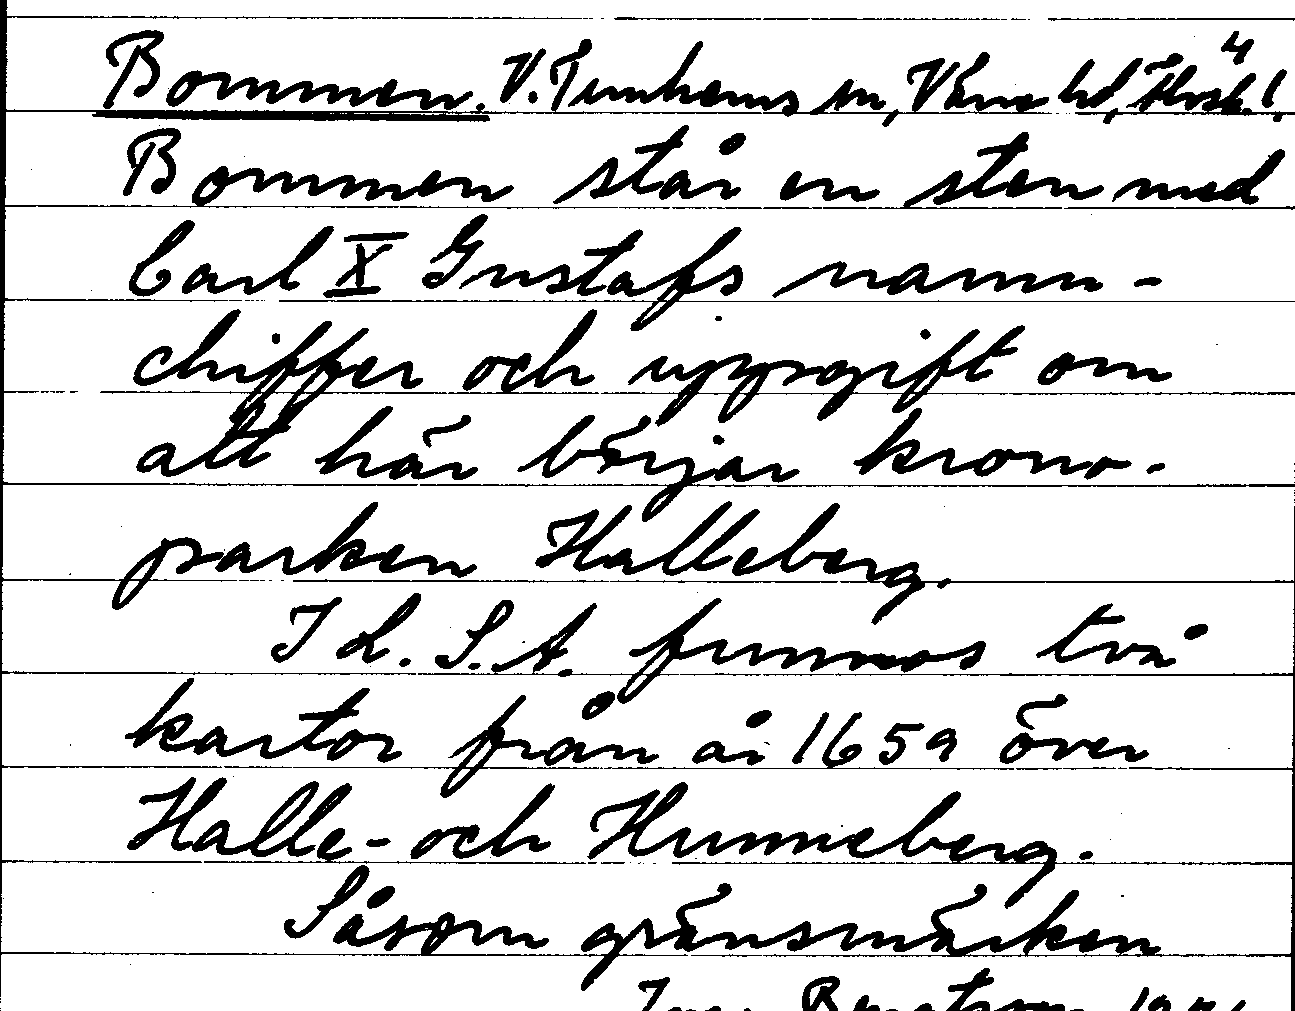 Bommen. V. Tunhems sn, Väne hd, Älvsb. l. 4
Bommen står en sten med
Carl X Gustafs namn-
chiffer och uppgift om
att här börjar krono-
parken Halleberg.
I L. S. A. funnos två
kartor från år 1659 över
Halle- och Hunneberg.
Såsom gränsmärken